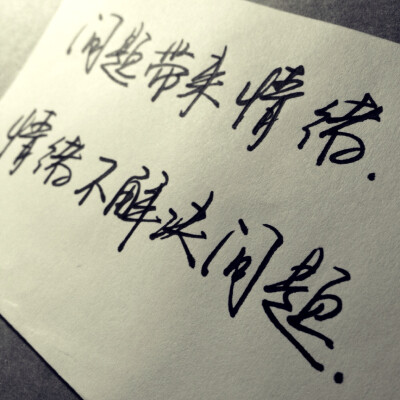 问题带来情绪.
情绪不解决问题.